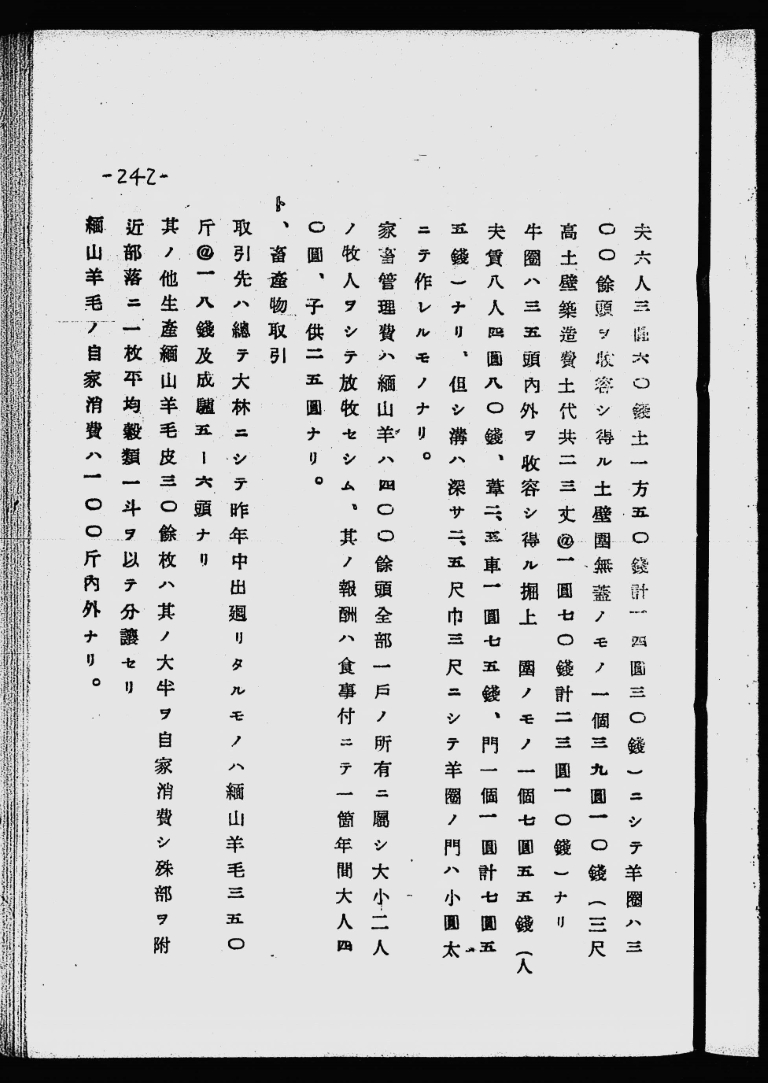 -242-
夫六人三圓六〇錢土一方五〇錢計一四圓三〇錢)ニシテ羊圈ハ三
〇〇餘頭ヲ收容シ得ル土壁圈無蓋ノモノ一個三九圓一〇錢(三尺
高土壁築造費土代共二三丈@一圓七〇錢計二三圓一〇錢)ナリ
牛圈ハ三五頭內外ヲ收容シ得ル掘上 圈ノモノ一個七圓五五錢(人
夫賃八人四圓八〇錢、葦二、五車一圓七五錢、門一個一圓計七圓五
五錢)ナリ、但シ溝ハ深サ二、五尺巾三尺ニシテ羊圈ノ門ハ小圓太
ニテ作レルモノナリ。
家畜管理費ハ緬山羊ハ四〇〇餘頭全部一戶ノ所有ニ屬シ大小二人
ノ牧人ヲシテ放牧セシム、其ノ報酬ハ食事付ニテ一箇年間大人四
〇圓、子供二五圓ナリ。
ト、畜產物取引
取引先ハ總テ大林ニシテ昨年中出廻リタルモノハ緬山羊毛三五〇
斤@一八錢及成驢五ー六頭ナリ
其ノ他生產緬山羊毛皮三〇餘枚ハ其ノ大半ヲ自家消費シ殊部ヲ附
近部落ニ一枚平均穀類一斗ヲ以テ分讓セリ
緬山羊毛ノ自家消費ハ一〇〇斤內外ナリ。